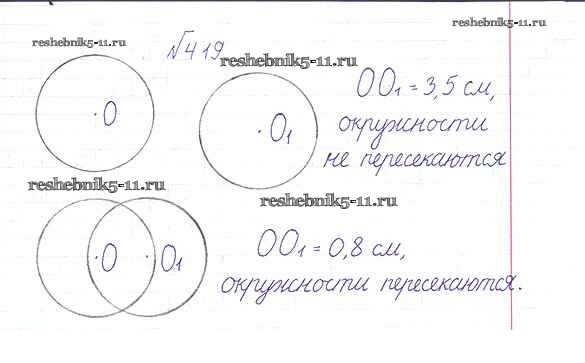 reshebnik5-11.ru
reshebnik5-11.ru
№419
reshebnik5-11.ru
O
O₁
OO₁ = 3,5 см,
окружности
не пересекаются
reshebnik5-11.ru
reshebnik5-11.ru
O
O₁
OO₁ = 0,8 см,
окружности пересекаются.